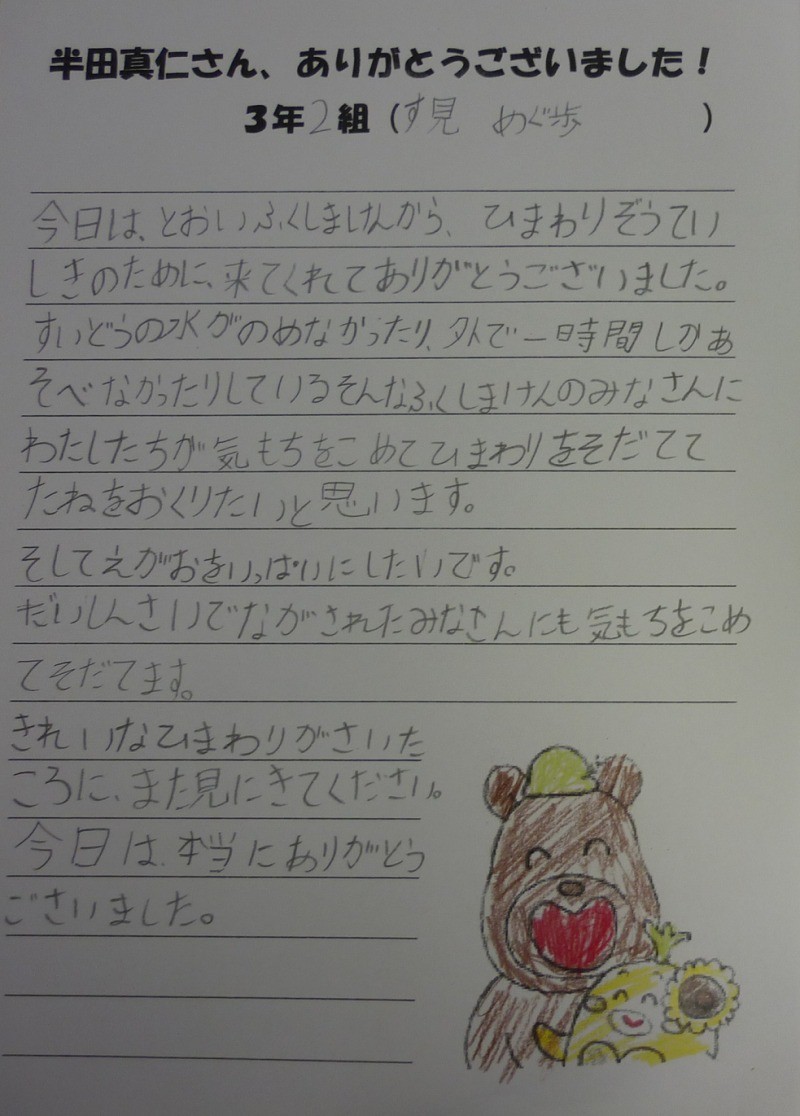 半田真仁さん、ありがとうございました！
3年2組（す見 めぐ歩）
今日は、とおいふくしまけんから、ひまわりぞうてい
しきのために、来てくれてありがとうございました。
すいどうの水がのめなかったり、外で一時間しかあ
そべなかったりしているそんなふくしまけんのみなさんに
わたしたちが気もちをこめてひまわりをそだてて
たねをおくりたいと思います。
そしてえがおをいっぱいにしたいです。
だいしんさいでながされたみなさんにも気もちをこめ
てそだてます。
きれいなひまわりがさいた
ころに、また見にきてください。
今日は、本当にありがとう
ごさいました。